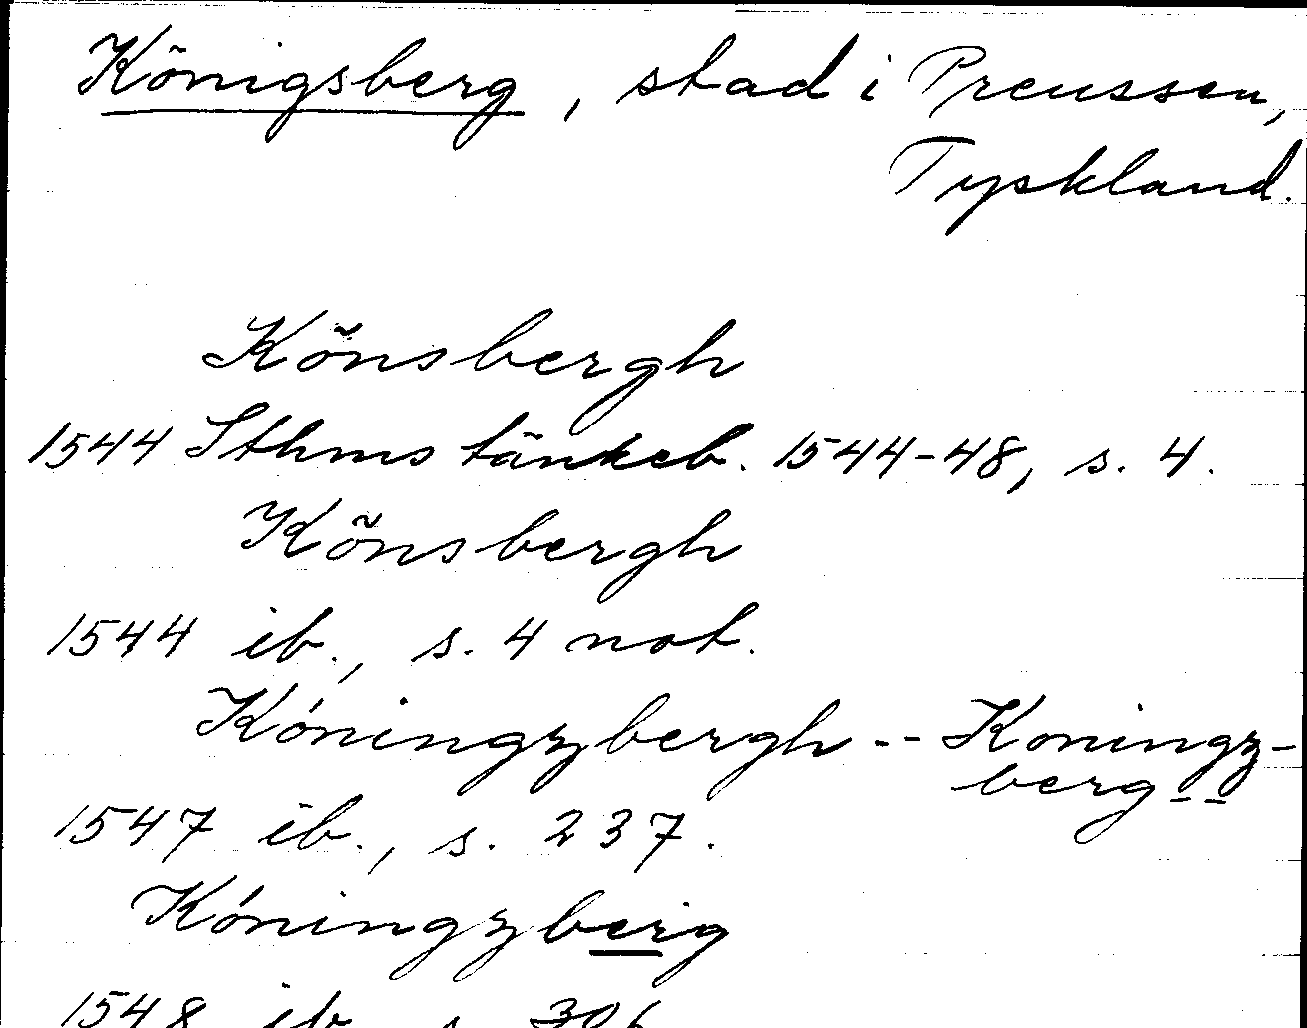 Königsberg, stad i Preussen,
Tyskland.
Könsbergh
1544 Sthms tänkeb. 1544-48, s. 4.
Könsbergh
1544 ib., s. 4 not.
Kóningzbergh -- Koningz-
berg --
1547 ib., s. 237.
Kóningzberig
1548 ib. s. 306